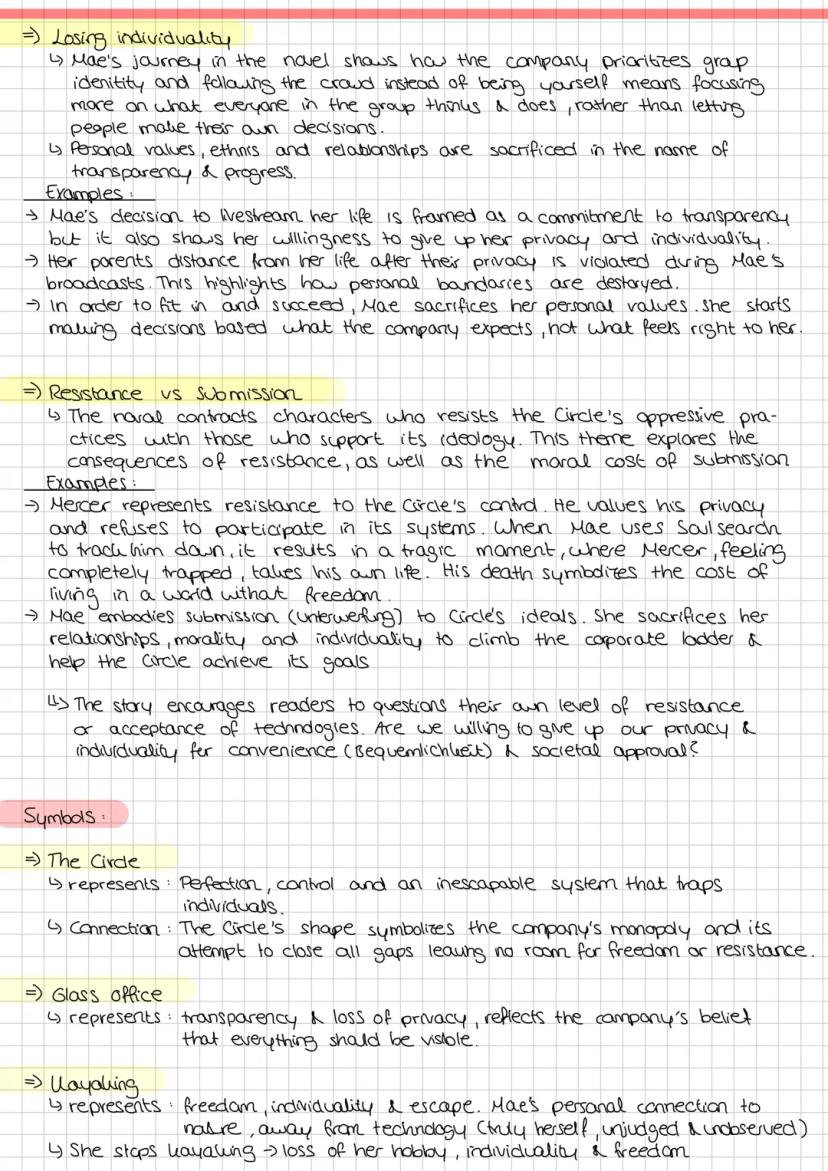 => Losing individuality
↳ Mae's journey in the novel shows how the company prioritizes group
idenitity and following the crowd instead of being yourself means focusing
more on what everyone in the group thinks & does, rather than letting
people make their own decisions.
↳ Personal values, ethnis and relationships are sacrificed in the name of
transparency & progress.
Examples:
→ Mae's decision to livestream her life is framed as a commitment to transparency
but it also shows her willingness to give up her privacy and individuality.
→ Her parents distance from her life after their privacy is violated during Mae's
broadcasts. This highlights how personal boundaries are destoryed.
→ In order to fit in and succeed, Mae sacrifices her personal values. She starts
making decisions based what the company expects, not what feels right to her.
=> Resistance vs Submission
↳ The noval contracts characters who resists the Circle's oppressive pra-
ctices with those who support its ideology. This theme explores the
consequences of resistance, as well as the moral cost of submission
Examples:
→ Mercer represents resistance to the Circle's control. He values his privacy
and refuses to participate in its systems. When Mae uses Soulsearch
to track him down, it results in a tragic moment, where Mercer, feeling
completely trapped, takes his own life. His death symbolizes the cost of
living in a world without freedom.
→ Mae embodies submission (unterwerfung) to Circle's ideals. She sacrifices her
relationships, morality and individuality to climb the coporate ladder &
help the Circle achieve its goals
↳> The story encourages readers to questions their own level of resistance
or acceptance of technologies. Are we willing to give up our privacy &
individuality for convenience (Bequemlichkeit) & societal approval?
Symbols:
=> The Circle
↳ represents: Perfection, control and an inescapable system that traps
individuals.
↳ Connection: The Circle's shape symbolizes the company's monopoly and its
attempt to close all gaps leaving no room for freedom or resistance.
=> Glass office
↳ represents: transparency & loss of privacy, reflects the company's belief
that everything should be visible.
=> Kayaking
↳ represents: freedom, individuality & escape. Mae's personal connection to
nature, away from technology (truly herself, unjudged & unobserved)
↳ She stops kayaking → loss of her hobby, individuality & freedom